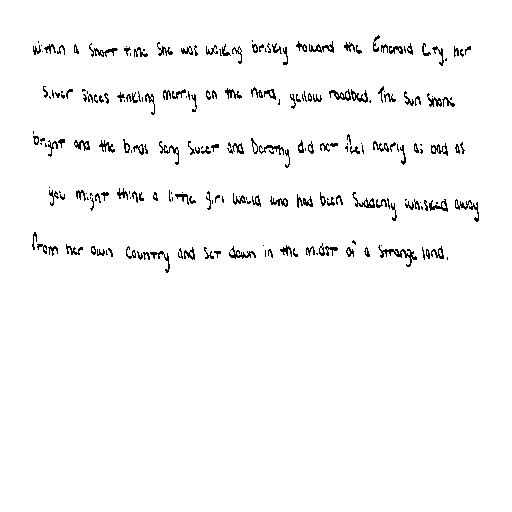 within a short time she was walking briskly toward the Emerald City, her
silver shoes tinkling merrily on the hard, yellow roadbed. The sun shone
bright and the birds sang sweet and Dorothy did not feel nearly as bad as
you might think a little girl would who had been suddenly whisked away
from her own country and set down in the midst of a strange land.